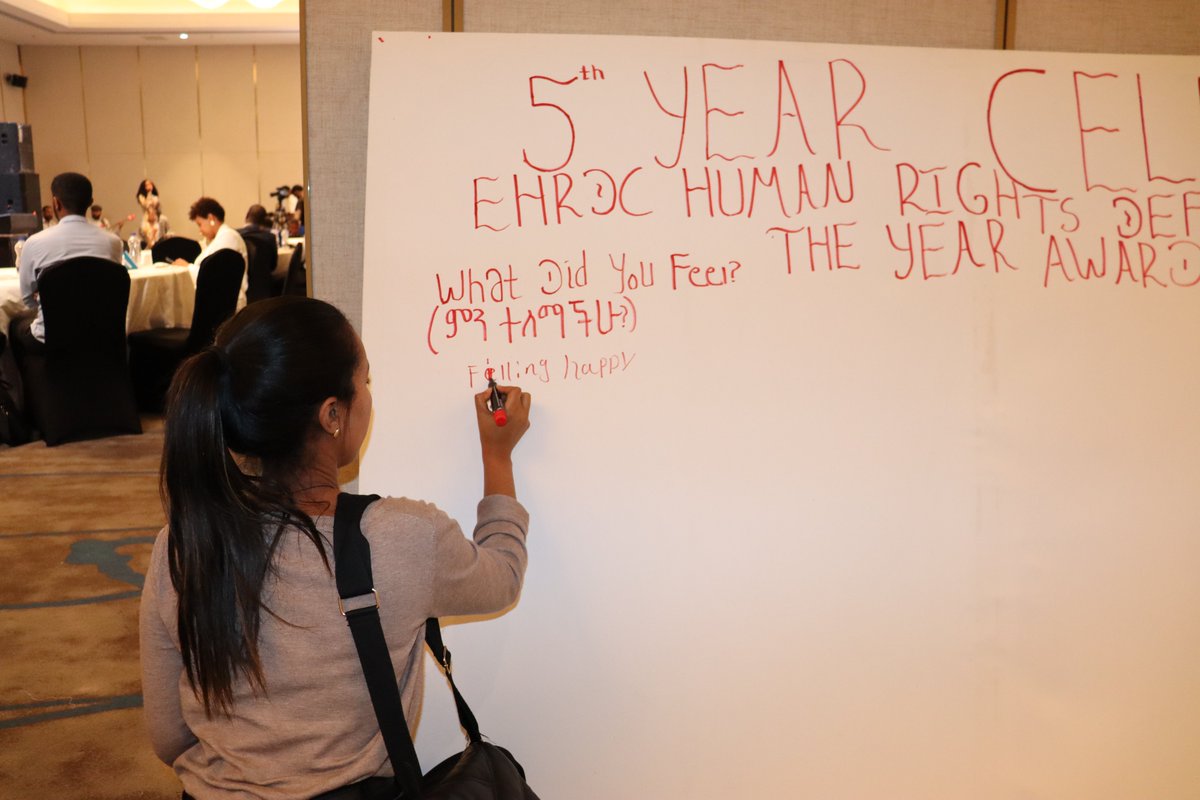 5th YEAR CEL
EHRDC HUMAN RIGHTS DEF
THE YEAR AWARD
What Did You Feel?
(ምን ተሰማችሁ?)
Filling happy